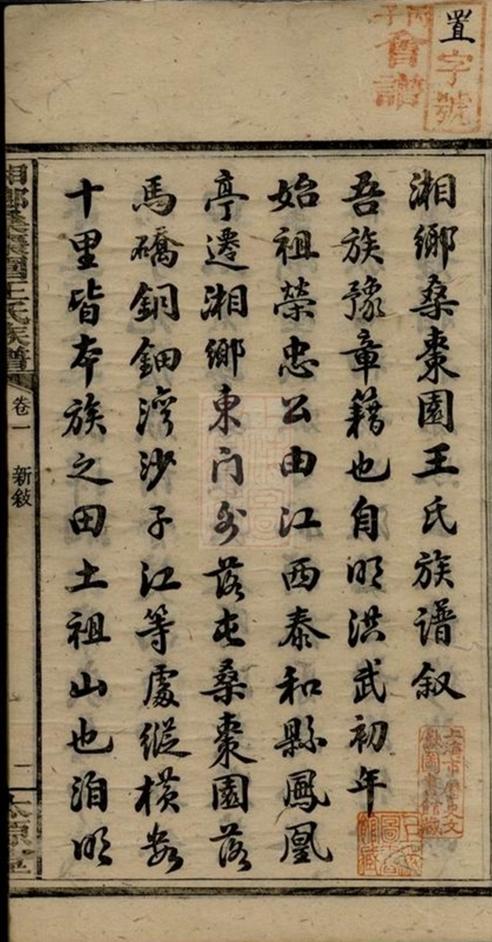 置字號
丙子
會譜
湘鄉桑棗園王氏族譜叙
吾族豫章籍也自明洪武初年
始祖榮忠公由江西泰和縣鳳凰
亭遷湘鄉東门外落屯桑棗園落
馬礄銅鈿灣沙子江等處縱横数
十里皆本族之田土祖山也洎明
湘鄉桑棗園王氏族譜
卷一
新敍
一
太原堂